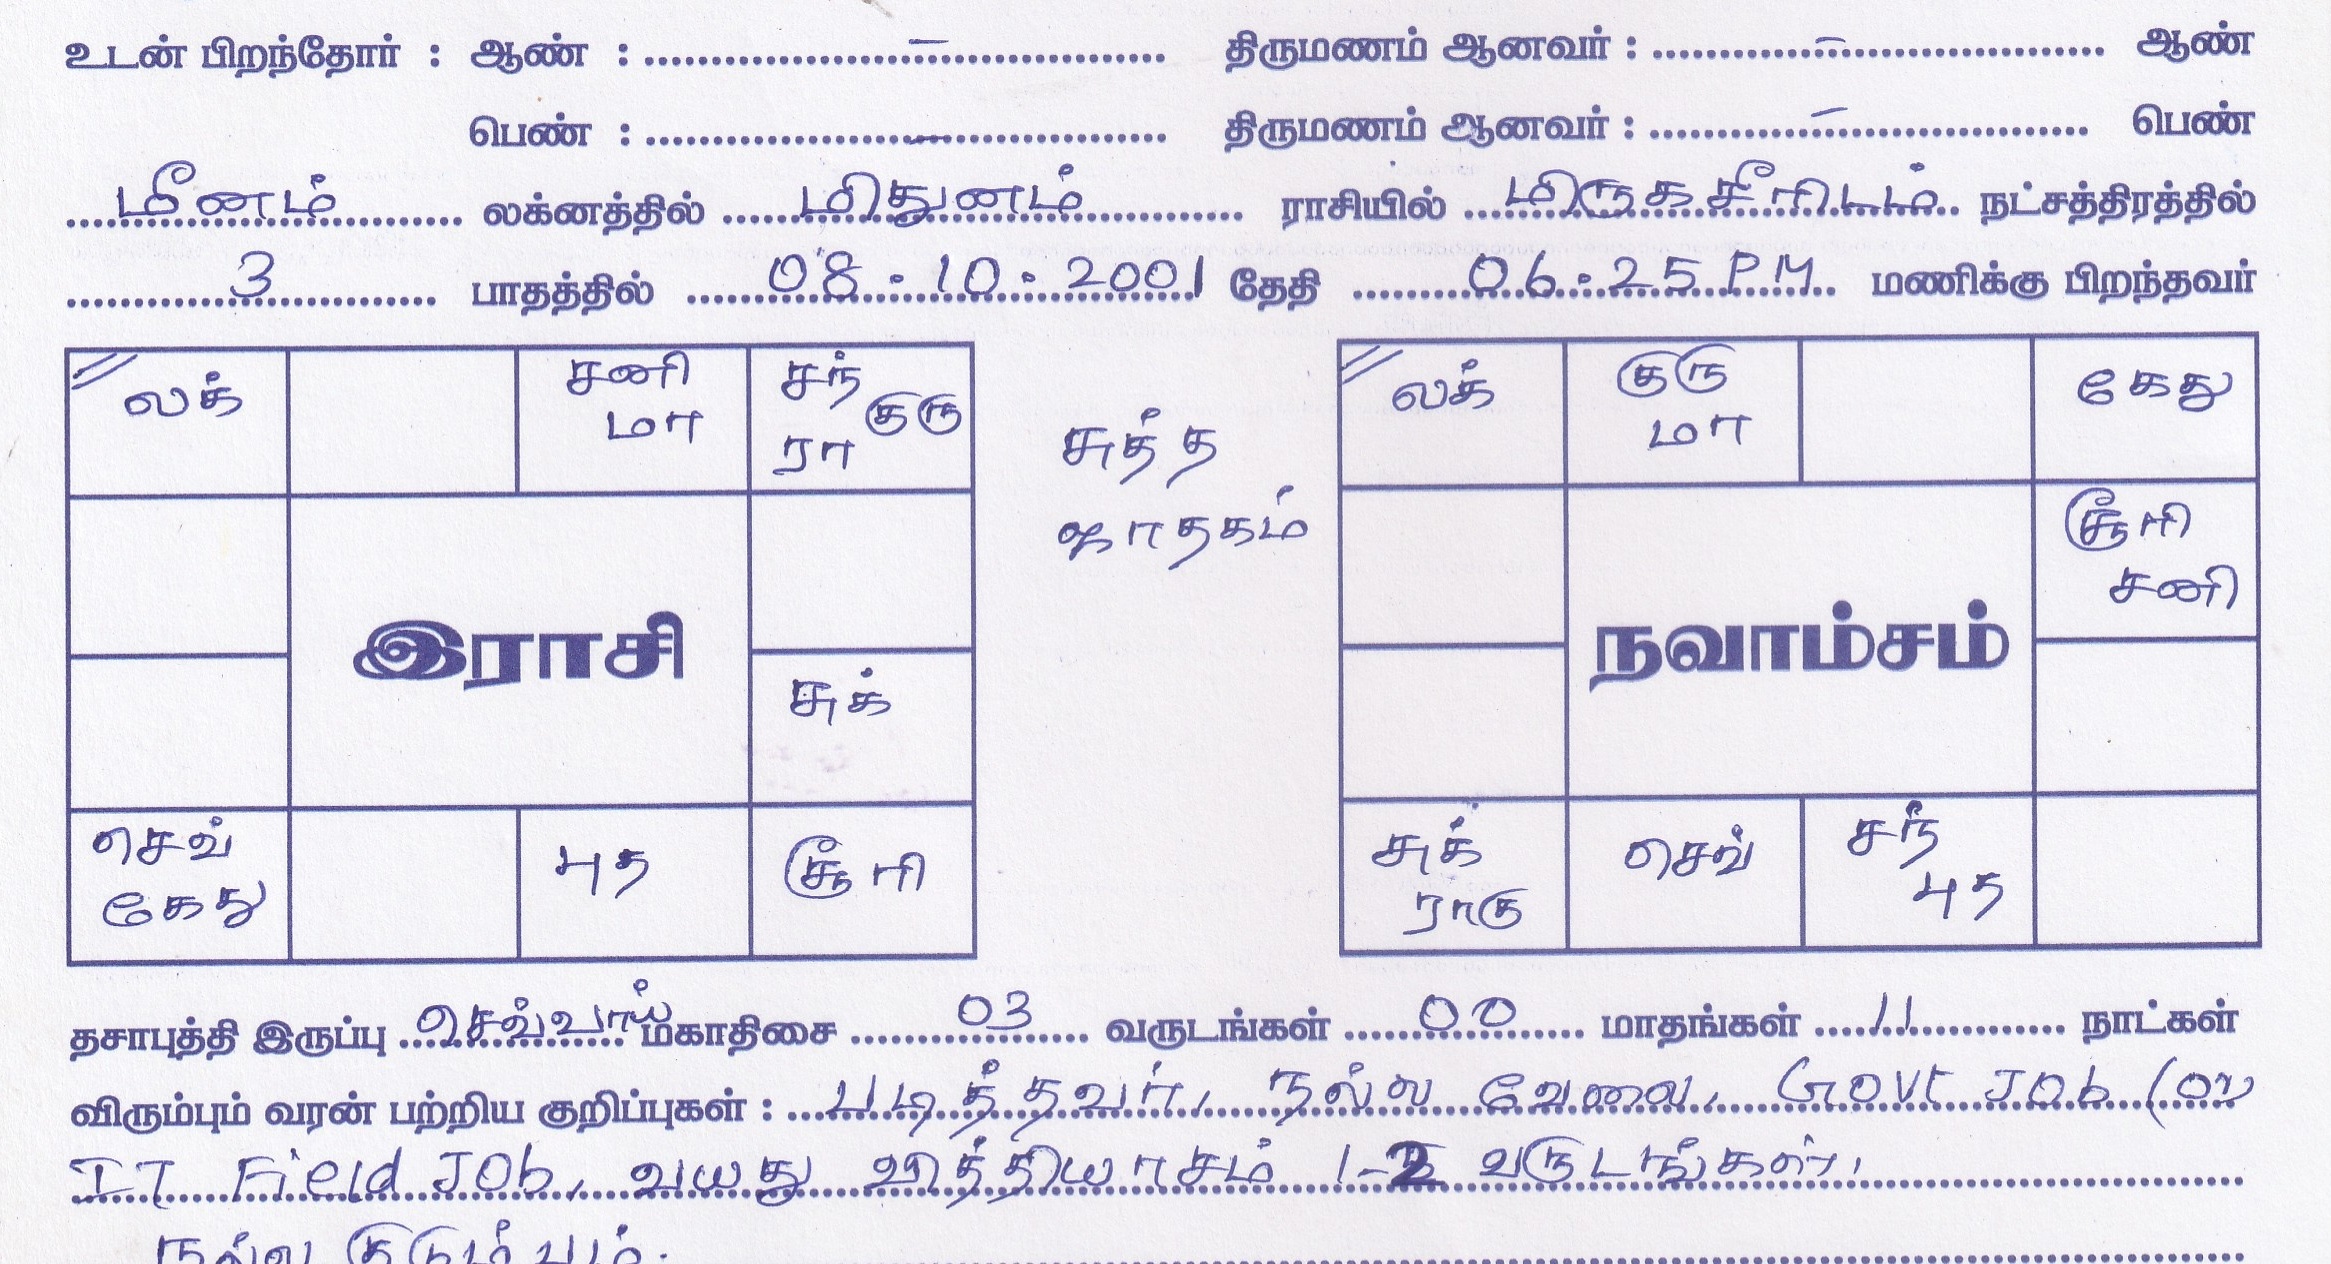 உடன் பிறந்தோர் : ஆண் : ........–........ திருமணம் ஆனவர் : ........–........ ஆண்
பெண் : ........–........ திருமணம் ஆனவர் : ........–........ பெண்
மீனம் லக்னத்தில் மிதுனம் ராசியில் மிருகசீரிடம் நட்சத்திரத்தில்
3 பாதத்தில் 08.10.2001 தேதி 06.25 P.M மணிக்கு பிறந்தவர்
லக் சனி சந் லக் குரு கேது
மா குரு மா
ரா
சுத்த சூரி
ஜாதகம் சனி
இராசி நவாம்சம்
சுக்
செவ் புத சூரி சுக் செவ் சந்
கேது ராகு புத
தசாபுத்தி இருப்பு செவ்வாய் மகாதிசை 03 வருடங்கள் 00 மாதங்கள் 11 நாட்கள்
விரும்பும் வரன் பற்றிய குறிப்புகள் : படித்தவர், நல்ல வேலை, Govt Job (or
IT Field Job, வயது வித்தியாசம் 1-2 வருடங்கள்,
நல்ல குடும்பம்.